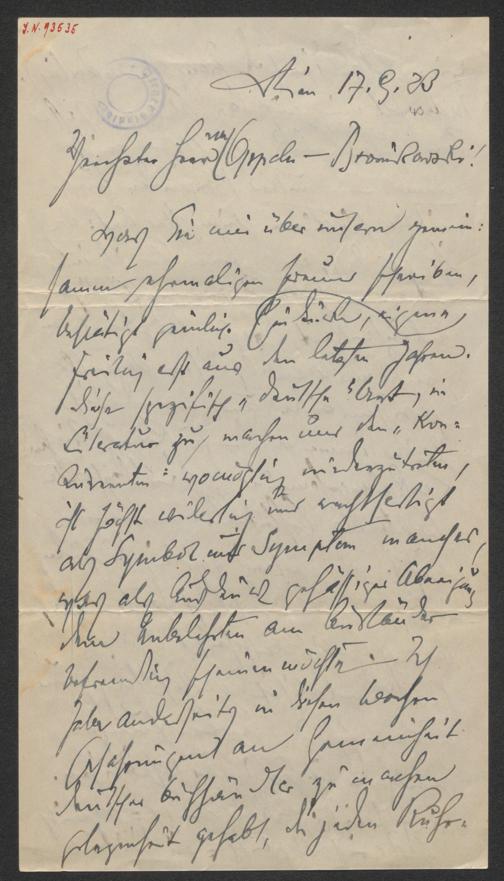 J.N. 93635
Wien 17.9.23
Verehrter Herr von Oppeln-Bronikowski!
Was Sie mir über unsern gemein:
samen ehemaligen Freund schreiben,
bestätigt peinlich Eindrücke, eigene,
freilich erst aus den letzten Jahren.
Diese spezifisch "deutsche" Art, in
Literatur zu machen und den "Kon=
kurrenten" womöglich niederzutreten,
ist höchst widerlich und rechtfertigt
als Symbol und Symptom manches,
was als Ausdruck gehässiger Abneigung
dem Unbelehrten am Ausländer
befremdlich scheinen möchte. Ich
habe anderseits in diesen Wochen
Erfahrungen an Gemeinheit
deutscher Buchhändler zu machen
Gelegenheit gehabt, die jeden Ruhr=